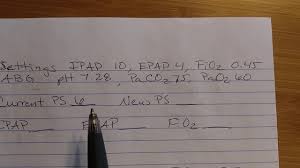 Settings IPAP 10, EPAP 4, FiO2 0.45
ABG pH 7.28, PaCO2 75, PaO2 60
Current PS 6 New PS ___
IPAP ___ EPAP ___ FiO2 ___